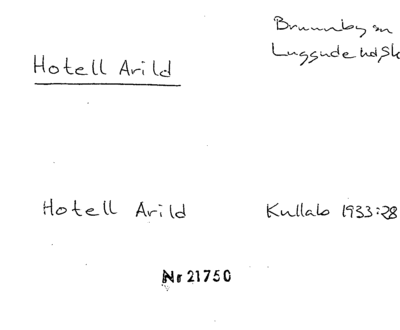 Brunnby sn
Luggude hd, Sk
Hotell Arild
Hotell Arild Kullab 1933:28
Nr 21750